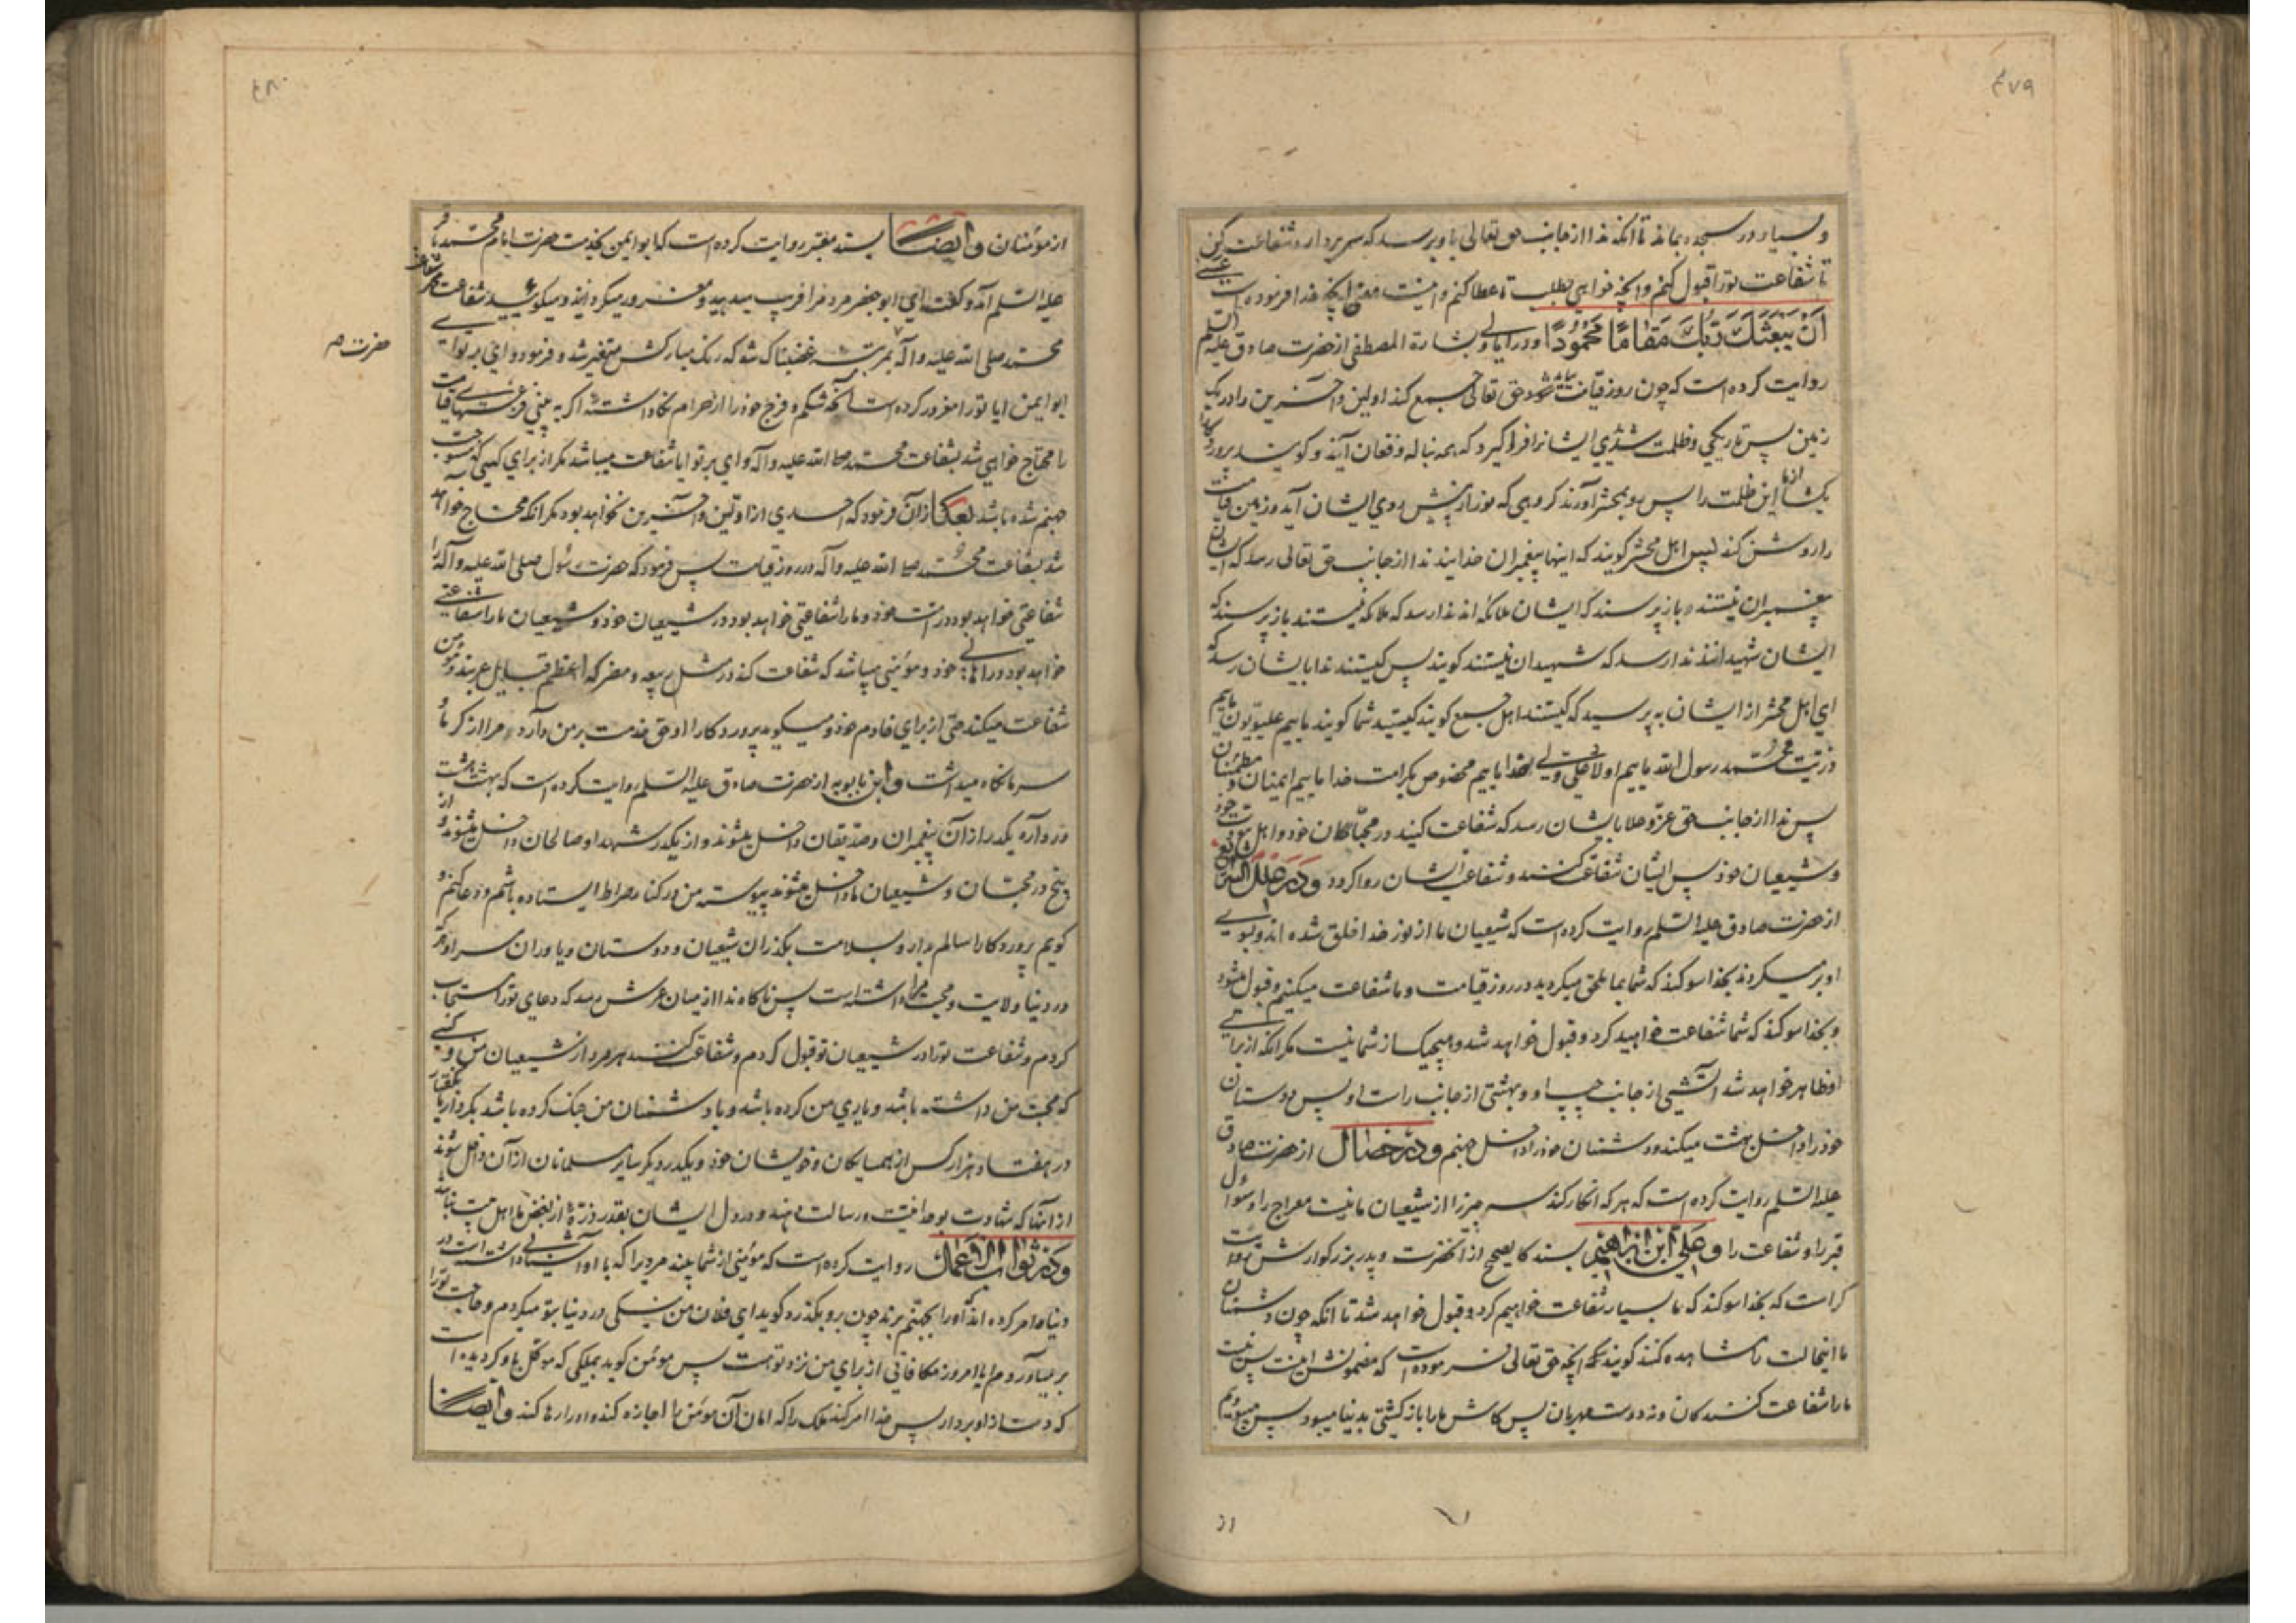 ٤٧٩
و بسیار در سجده بماند تا آنکه ندا از جانب حق تعالی باو برسد که سر بردار و شفاعت کن
تا شفاعت تو را قبول کنم و آنچه خواهی بطلب تا عطا کنم و اینست معنی آنچه خدا فرموده است عسی
اَنْ یَبْعَثَكَ رَبُّكَ مَقامًا مَحْمُودًا و در امالی و بشارة المصطفی از حضرت صادق علیه السلم
روایت کرده است که چون روز قیامت شود حق تعالی جمع کند اولین و آخرین را در یک
زمین پس تاریکی و ظلمت شدیدی ایشانرا فرو گیرد که همه بناله و فغان آیند و گویند پروردگارا
بکشا از ما این ظلمت را پس رو بمحشر آورند گروهی که نور از پیش روی ایشان آید و زمین قیامت
را روشن کند پس اهل محشر گویند که اینها پیغمبران خدایند ندا از جانب حق تعالی رسد که ایشان
پیغمبران نیستند باز پرسند که ایشان ملائکه اند ندا رسد که ملائکه نیستند باز پرسند که
ایشان شهیدانند ندا رسد که شهیدان نیستند گویند پس کیستند ندا بایشان رسد که
ای اهل محشر از ایشان بپرسید که کیستند اهل جمع گویند کیستید شما گویند ماییم علویون ماییم
ذریت محمد رسول الله ماییم اولاد علی ولی خدا ماییم مخصوص بکرامت خدا ماییم ایمنان و مطمئنان
پس ندا از جانب حق عز و علا بایشان رسد که شفاعت کنید در محبان خود و اهل مودت خود
و شیعیان خود پس ایشان شفاعت کنند و شفاعت ایشان روا گردد و در علل الشرایع
از حضرت صادق علیه السلم روایت کرده است که شیعیان ما از نور خدا خلق شده اند و بسوی
او برمیگردند بخدا سوگند که شما بما ملحق میگردید در روز قیامت و ما شفاعت میکنیم و قبول میشود
و بخدا سوگند که شما شفاعت خواهید کرد و قبول خواهد شد و هیچیک از شما نیست مگر آنکه از برای
او ظاهر خواهد شد آتشی از جانب چپ او و بهشتی از جانب راست او پس دوستان
خود را داخل بهشت میکند و دشمنان خود را داخل جهنم و در خصال از حضرت صادق
علیه السلم روایت کرده است که هر که انکار کند سه چیز را از شیعیان ما نیست معراج را و سؤال
قبر را و شفاعت را و علی ابن ابراهیم بسند کالصحیح از آنحضرت و پدر بزرگوارش روایت
کرده است که بخدا سوگند که ما بسیار شفاعت خواهیم کرد و قبول خواهد شد تا آنکه چون دشمنان
ما اینحالت را مشاهده کنند گویند آنچه حق تعالی فرموده است که مضمونش اینست پس نیست
ما را شفاعت کنندگان و نه دوست مهربان پس کاش ما را بازگشتی بدنیا میبود پس میبودیم
از
٤٨٠
از مؤمنان وایضًا بسند معتبر روایت کرده است که ابو ایمن بخدمت حضرت امام محمد باقر
علیه السلم آمد و گفت ای ابو جعفر مردم را فریب میدهید و مغرور میگردانید و میگویید شفاعت محمد شفاعت
محمد صلی الله علیه و آله بمرتبه غضبناک شد که رنگ مبارکش متغیر شد و فرمود وای بر تو ای
حضرت ص
ابو ایمن آیا تو را مغرور کرده است آنکه شکم و فرج خود را از حرام نگاه داشته اگر به بینی فزعهای قیامت
را محتاج خواهی شد بشفاعت محمد صلی الله علیه و آله وای بر تو آیا شفاعت میباشد مگر از برای کسی که مستوجب
جهنم شده باشد بعد از آن فرمود که احدی از اولین و آخرین نخواهد بود مگر آنکه محتاج خواهد
شد بشفاعت محمد صلی الله علیه و آله در روز قیامت پس فرمود که حضرت رسول صلی الله علیه و آله را
شفاعتی خواهد بود در امت خود و ما را شفاعتی خواهد بود در شیعیان خود و شیعیان ما را شفاعتی
خواهد بود در اهالی خود و مؤمنی میباشد که شفاعت کند در مثل ربیعه و مضر که اعظم قبایل عربند و مؤمن
شفاعت میکند حتی از برای خادم خود و میگوید پروردگارا او حق خدمت بر من دارد و مرا از گرما و
سرما نگاه میداشت و ابن بابویه از حضرت صادق علیه السلم روایت کرده است که بهشت هشت
در دارد یکدر از آن پیغمبران و صدیقان داخل میشوند و از یکدر شهدا و صالحان داخل میشوند و از
پنج در محبان و شیعیان ما داخل میشوند پیوسته من در کنار صراط ایستاده باشم و دعا کنم و
گویم پروردگارا سالم بدار و بسلامت بگذران شیعیان و دوستان و یاوران مرا و هر که
در دنیا ولایت و محبت مرا داشته است پس ناگاه ندا از میان عرش رسد که دعای تو را مستجاب
کردم و شفاعت تو را در شیعیان تو قبول کردم و شفاعت کنند هر مرد از شیعیان من و کسی
که محبت من داشته باشد و یاری من کرده باشد و با دشمنان من جنگ کرده باشد بکردار یا بگفتار
در هفتاد هزار کس از همسایگان و خویشان خود و یکدر دیگر سایر مسلمانان از آن داخل شوند
از آنها که شهادت بوحدانیت و رسالت دهند و در دل ایشان بقدر ذره از بغض ما اهل بیت نباشد
و در ثواب الاعمال روایت کرده است که مؤمنی از شما بیند مردی را که با او آشنائی داشته است در
دنیا و امر کرده اند او را بجهنم برند چون برو بگذرد گوید ای فلان من نیکی در دنیا بتو میکردم و حاجت تو را
بر میآوردم آیا امروز مکافاتی از برای من نزد تو هست پس مؤمن گوید بملکی که موکل باو گردیده است
که دست از او بردار پس خدا امر کند ملک را که امان آن مؤمن را اجازه کند و او را رها کند وایضًا